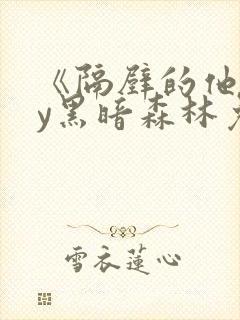 《隔壁的他
y黑暗森林
雪衣莲心